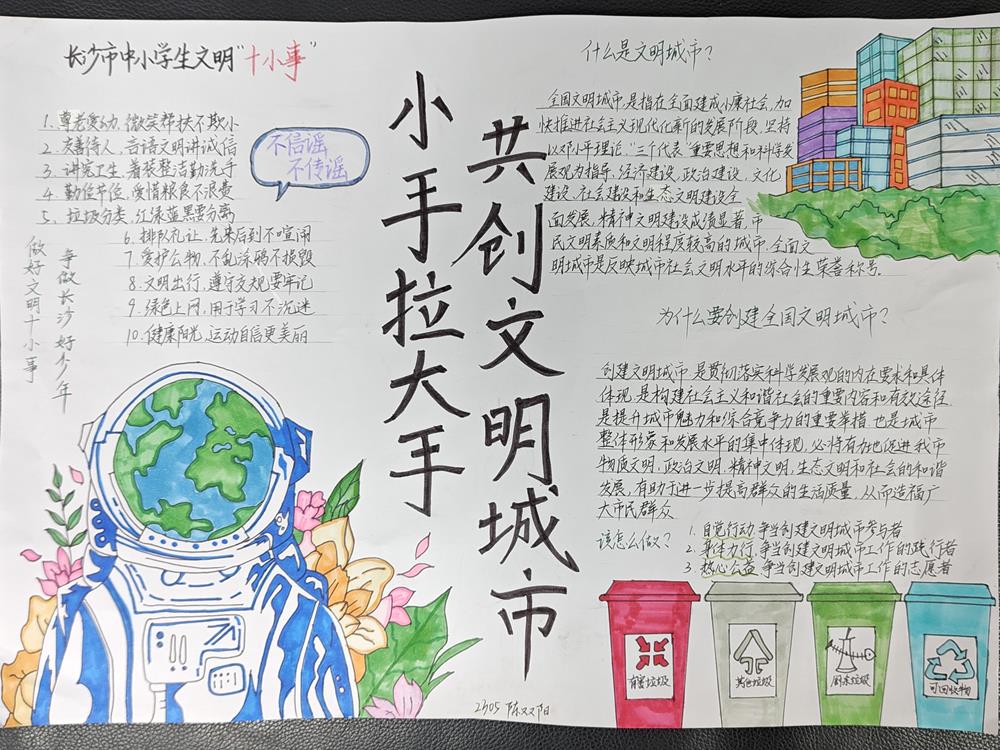 长沙市中小学生文明"十小事"
1. 尊老爱幼,微笑帮扶不欺小
2. 友善待人,言语文明讲诚信
3. 讲究卫生,着装整洁勤洗手
4. 勤俭节俭,爱惜粮食不浪费
5. 垃圾分类,红绿蓝黑要分离
6. 排队礼让,先来后到不喧闹
7. 爱护公物,不乱涂鸦不损毁
8. 文明出行,遵守交规要牢记
9. 绿色上网,用于学习不沉迷
10. 健康阳光,运动自信更美丽
争做长沙好少年
做好文明十小事
不信谣
不传谣
小手拉大手
共创文明城市
什么是文明城市?
全国文明城市,是指在全面建成小康社会,加
快推进社会主义现代化新的发展阶段,坚持
以邓小平理论,"三个代表"重要思想和科学发
展观为指导,经济建设,政治建设,文化
建设,社会建设和生态文明建设全
面发展,精神文明建设成绩显著,市
民文明素质和文明程度较高的城市,全国文
明城市是反映城市社会文明水平的综合性荣誉称号.
为什么要创建全国文明城市?
创建文明城市,是贯彻落实科学发展观的内在要求和具体
体现,是构建社会主义和谐社会的重要内容和有效途径
是提升城市魅力和综合竞争力的重要举措,也是城市
整体形象和发展水平的集中体现,必将有力地促进我市
物质文明,政治文明,精神文明,生态文明和社会的和谐
发展,有助于进一步提高群众的生活质量,从而造福广
大市民群众
该怎么做?
1. 自觉行动,争当创建文明城市参与者
2. 身体力行,争当创建文明城市工作的践行者
3. 热心公益,争当创建文明城市工作的志愿者
有害垃圾
其他垃圾
厨余垃圾
可回收物
2305 陈双阳